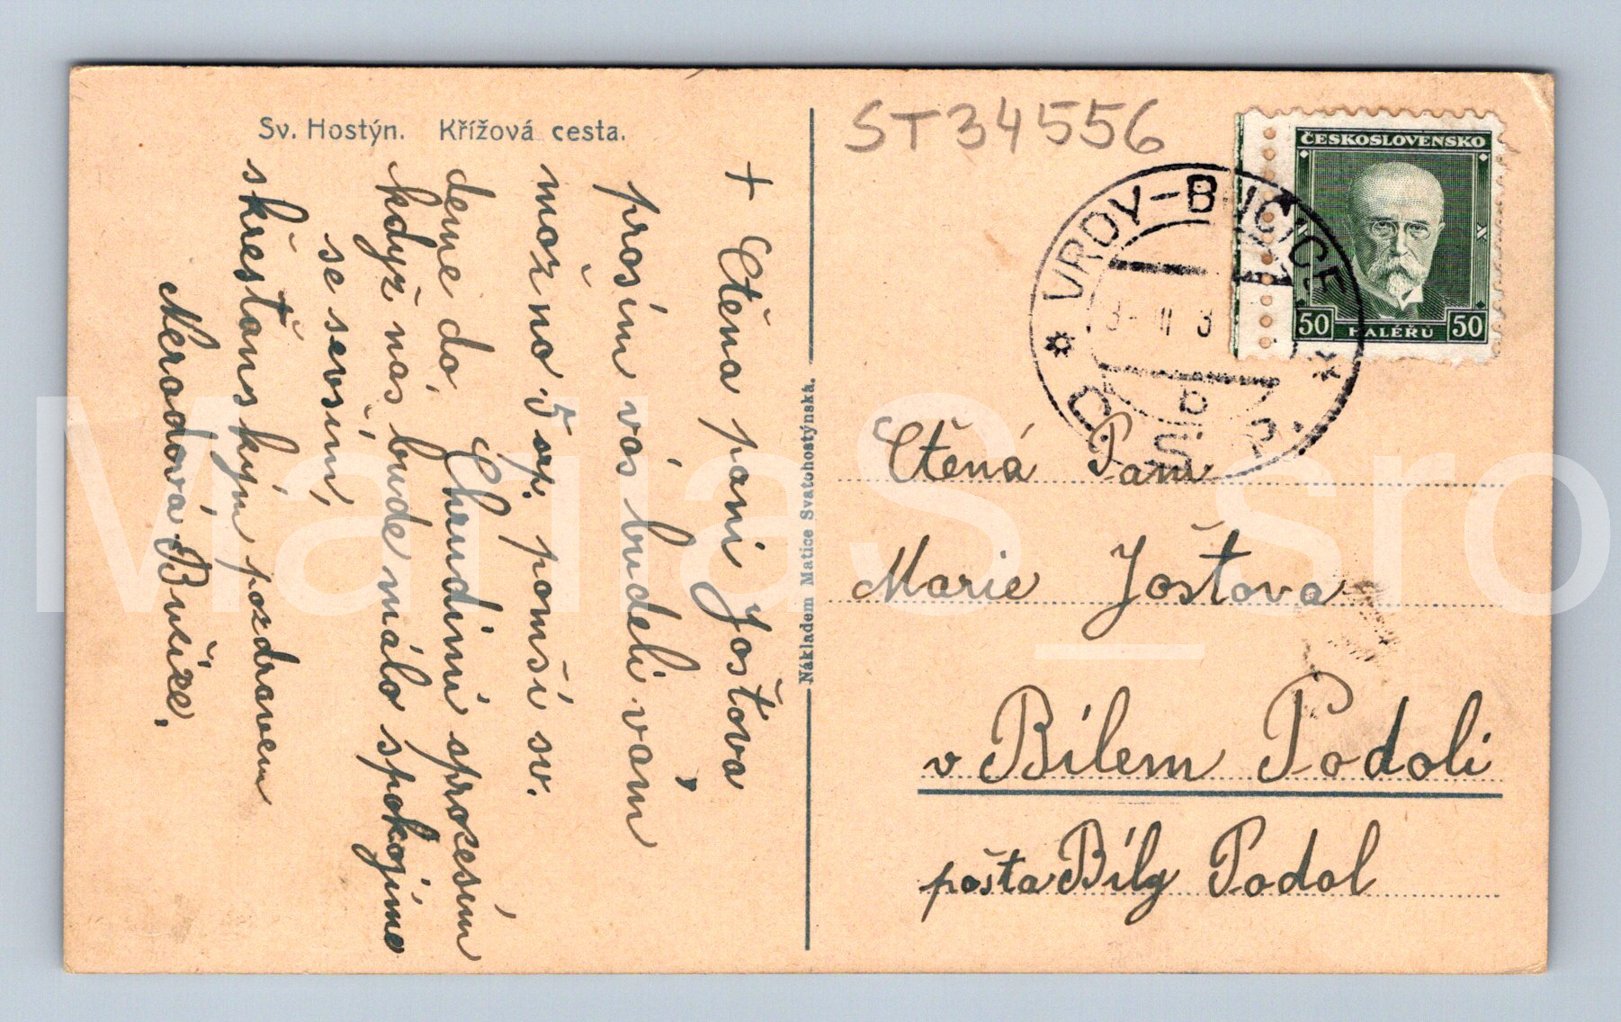 Sv. Hostýn. Křížová cesta.
+ Ctěna paní Jošťova
prosím vás budeli vám
možno 5 srp. pomší sv.
deme do Chrudimi sprocesím
když nás bude málo spokojíme
se sevsím,
skřesťanským pozdravem
Neradová Bučice.
Nákladem Matice Svatohostýnská.
ST34556
ČESKOSLOVENSKO
50 HALÉŘŮ 50
VRDY-BUČICE
b
Č.S.R.
Ctěná Paní
Marie Jošťova
v Bílem Podoli
pošta Bílý Podol
MariaS_sro